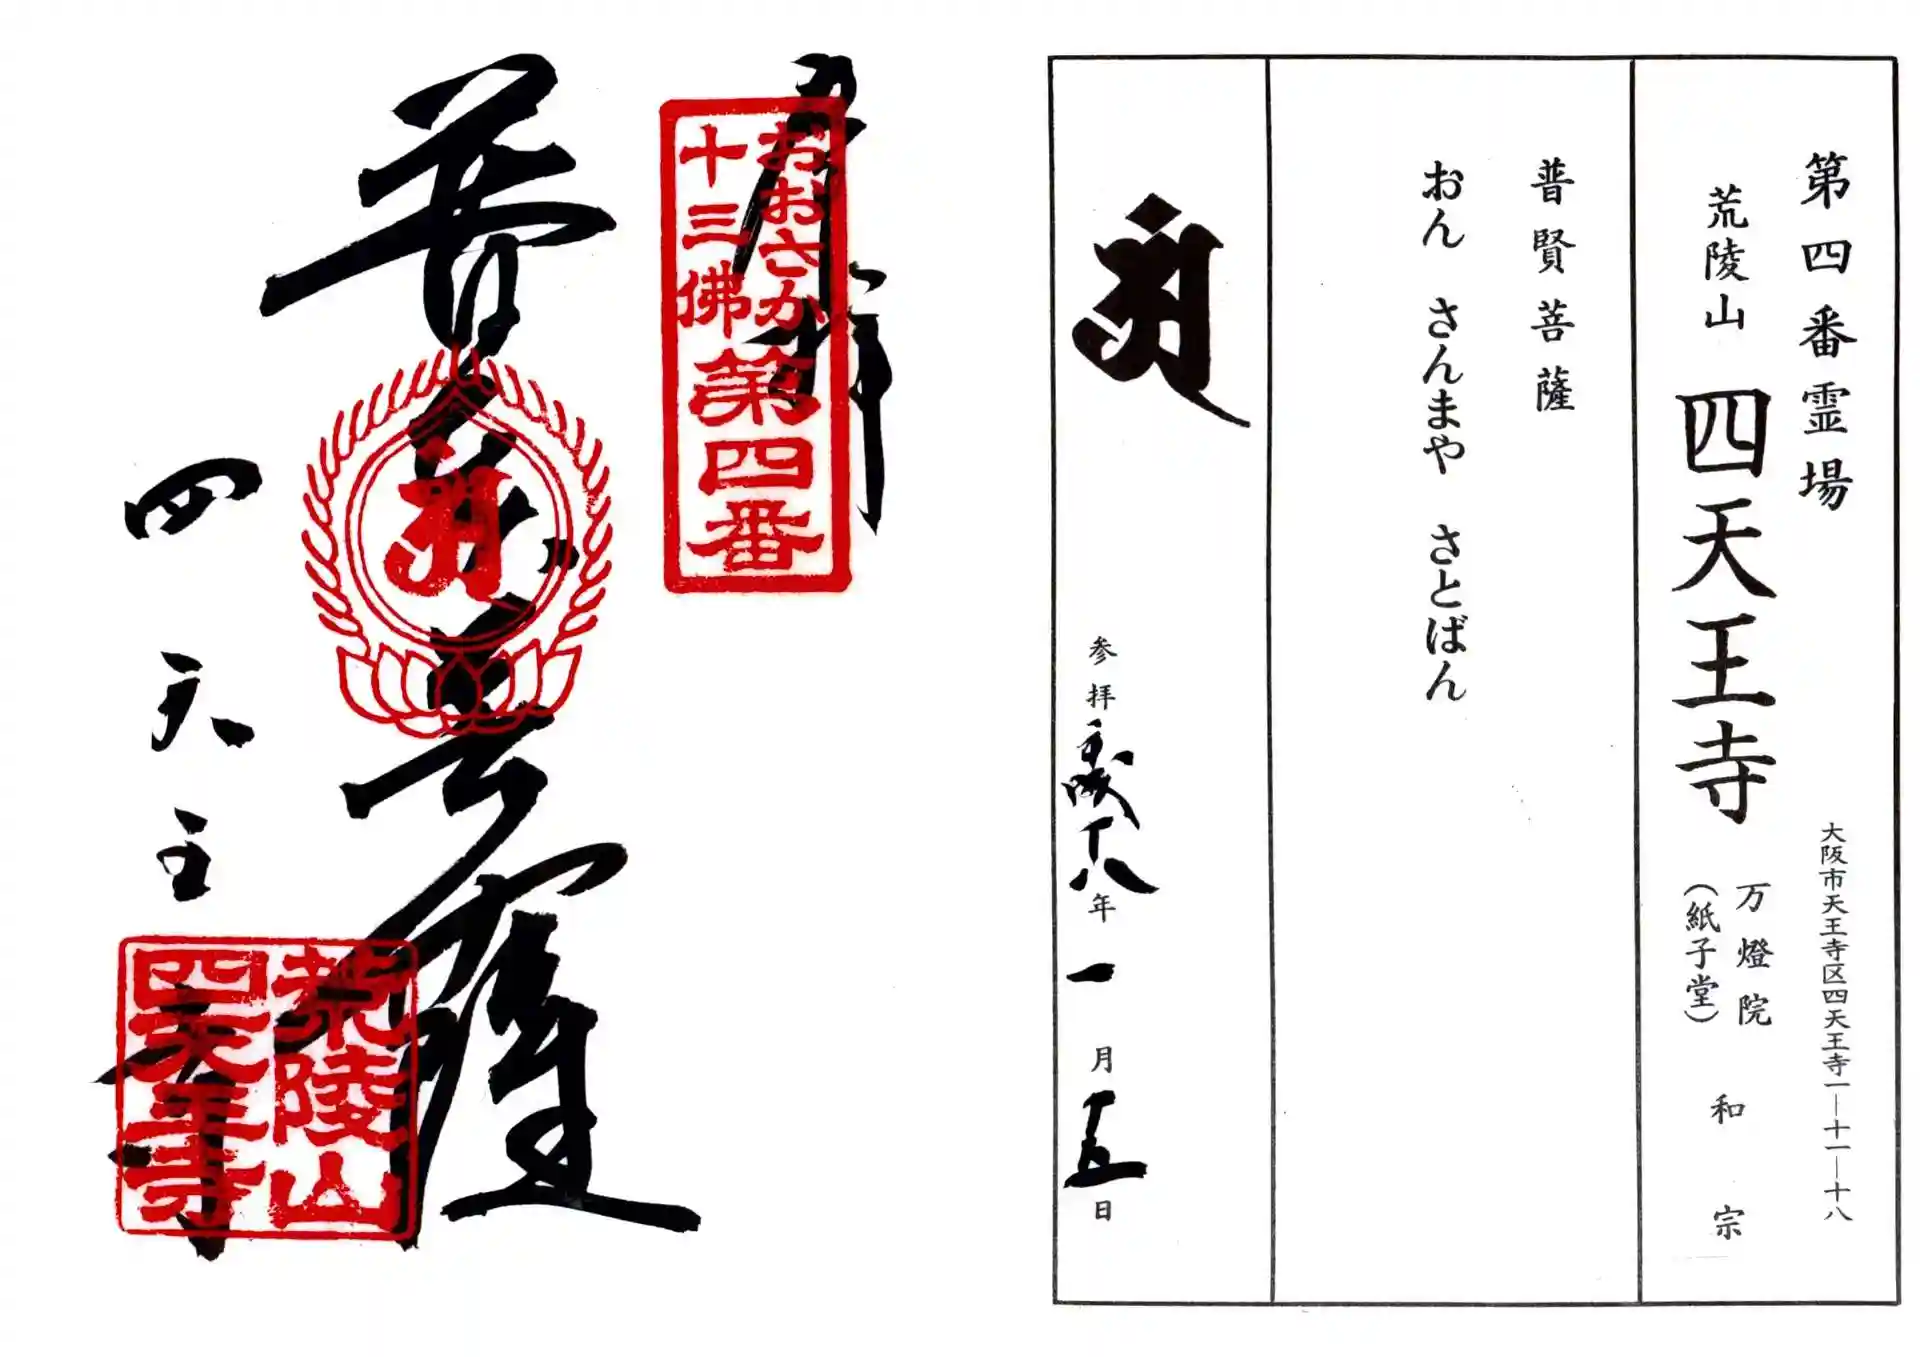 第四番霊場
大阪市天王寺区四天王寺一―十一―十八
荒陵山 四天王寺 万燈院 和宗
（紙子堂）
普賢菩薩
おん さんまや さとばん
参拝平成十八年一月十五日
奉拝
おおさか
十三佛
第四番
普賢菩薩
四天王寺
荒陵山
四天王寺